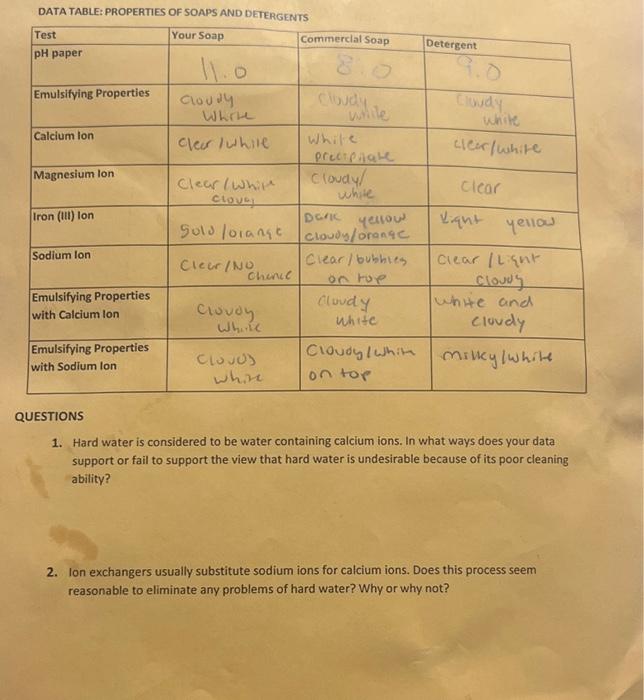 DATA TABLE: PROPERTIES OF SOAPS AND DETERGENTS
Test Your Soap Commercial Soap Detergent
pH paper 11.0 8.0 9.0
Emulsifying Properties cloudy white cloudy white cloudy white
Calcium Ion clear/white white precipitate clear/white
Magnesium Ion Clear/white cloudy cloudy/white Clear
Iron (III) Ion /orange Dark yellow cloudy/orange Light yellow
Sodium Ion Clear/NO Clear/bubbles on top Clear/Light cloudy
Emulsifying Properties with Calcium Ion cloudy white cloudy white white and cloudy
Emulsifying Properties with Sodium Ion cloudy white cloudy/white on top milky/white
QUESTIONS
1. Hard water is considered to be water containing calcium ions. In what ways does your data
support or fail to support the view that hard water is undesirable because of its poor cleaning
ability?
2. Ion exchangers usually substitute sodium ions for calcium ions. Does this process seem
reasonable to eliminate any problems of hard water? Why or why not?